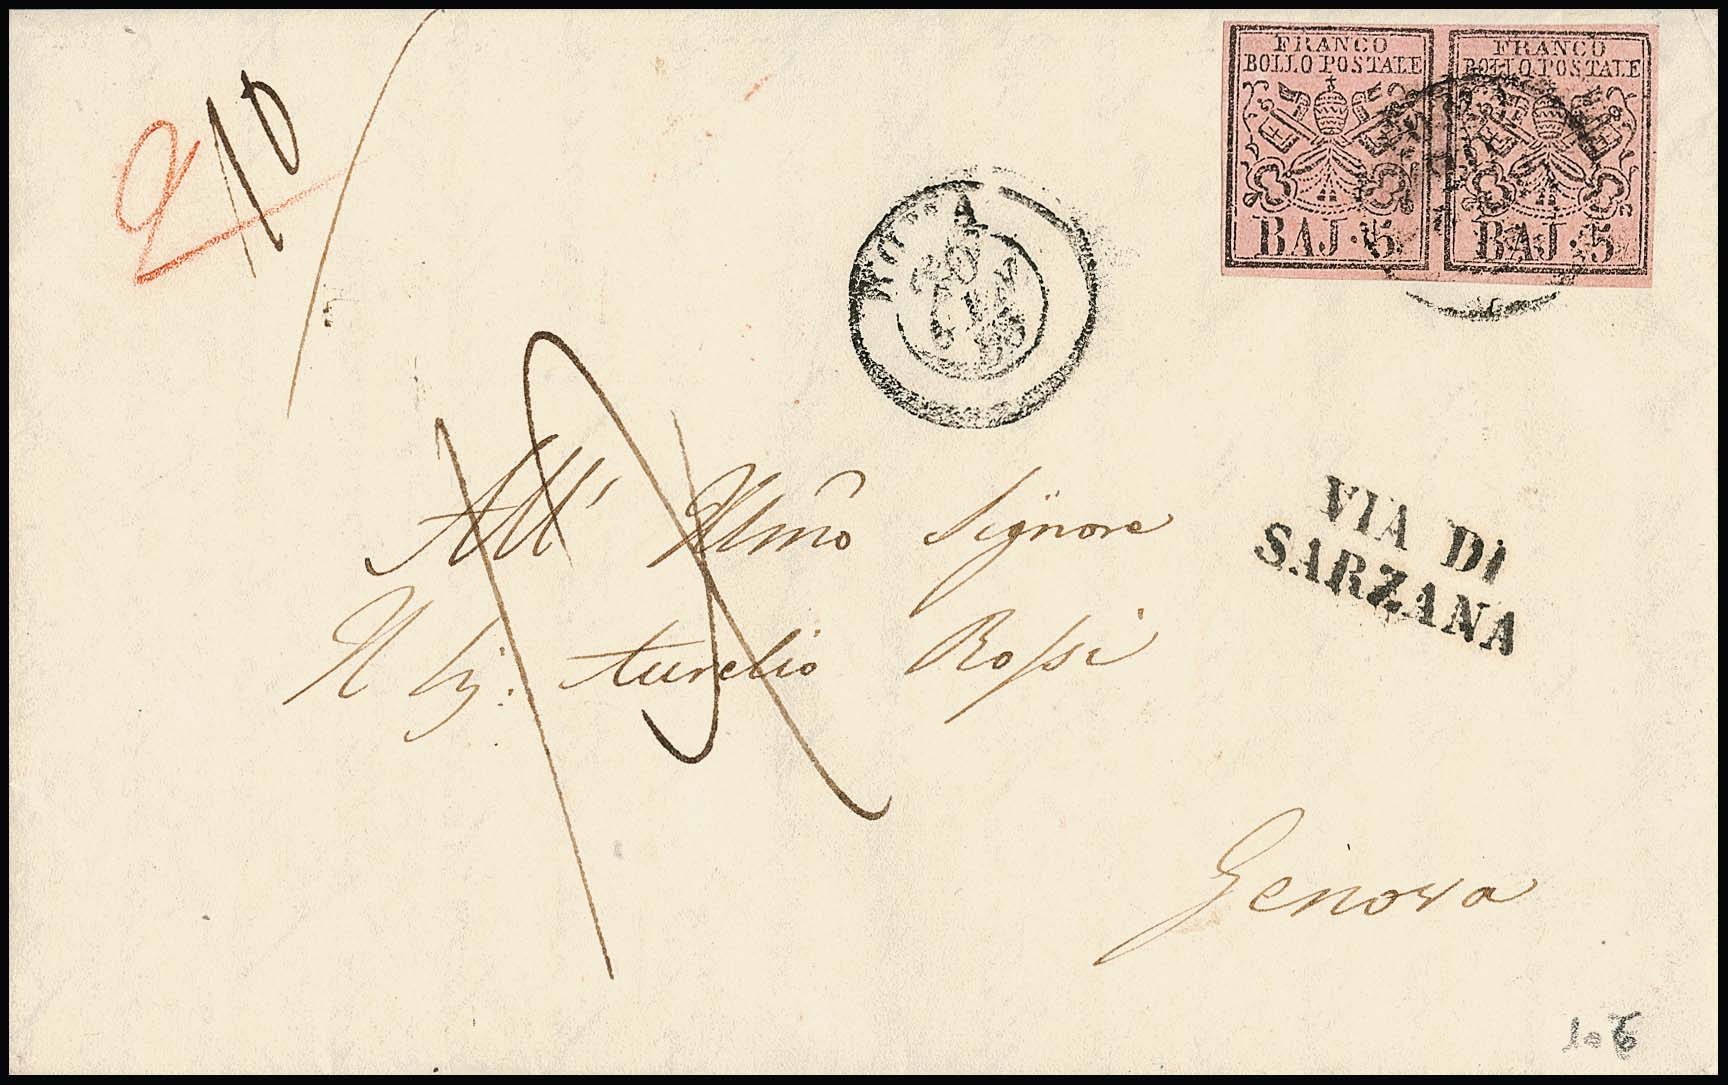 2 10
FRANCO
BOLLO POSTALE
BAJ. 5
FRANCO
BOLLO POSTALE
BAJ. 5
ROMA
VIA DI
SARZANA
All' Illmo Signore
Il Sig. Aurelio Rossi
Genova